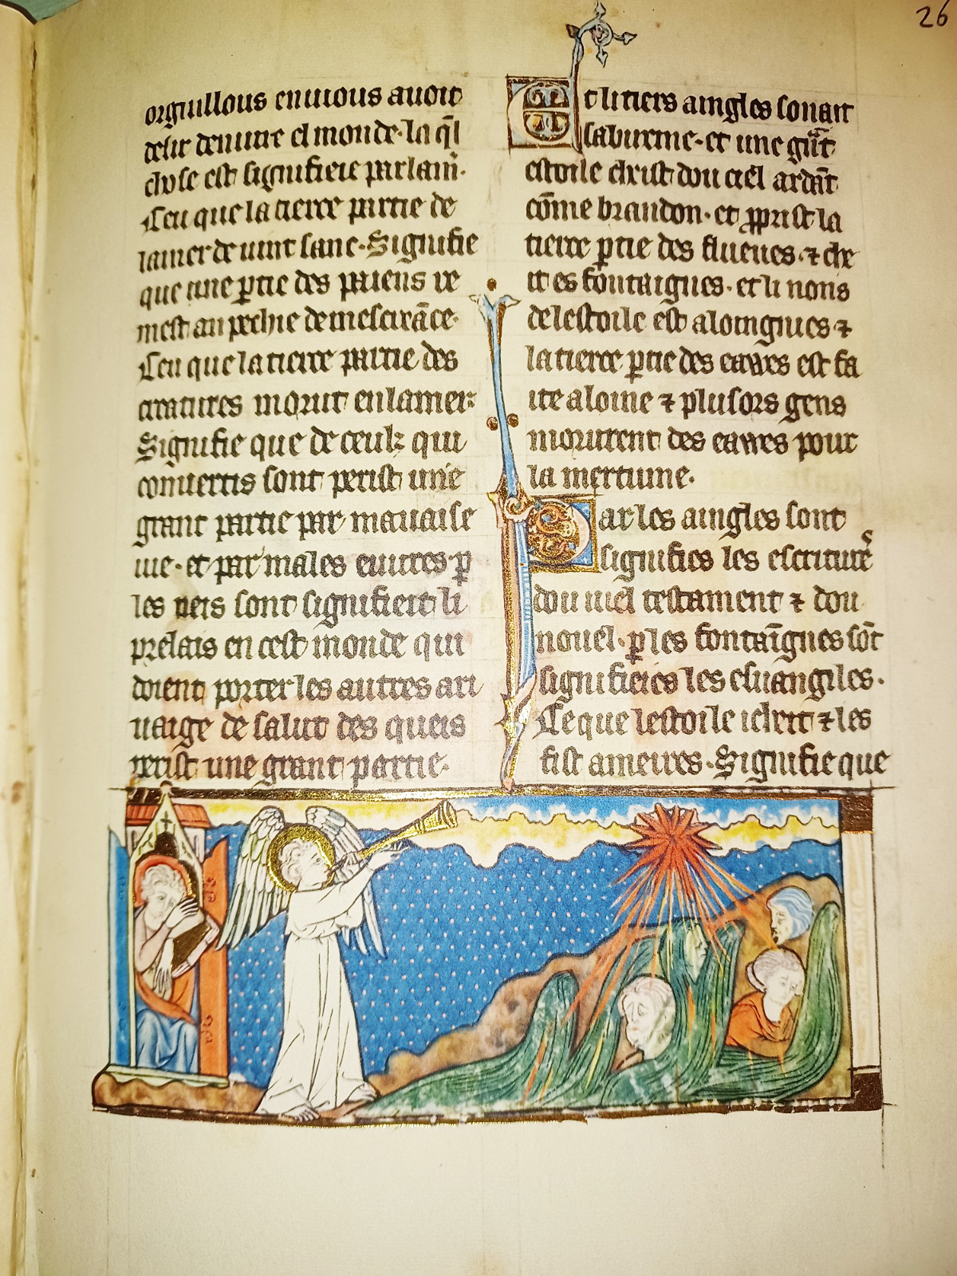 26
orguillous enuious auoit
desir deuuire el monde. la q̄l
chose est signifieie par lam̄.
Ceu que la tierce partie de
la mer deuint sanc. Signifie
que une ꝑtie des paiens re
mest an pechie de mescreāce.
Ceu que la tierce partie des
creatures morut en la mer:
Signifie que de ceulz qui
conuertis sont perist une
grant partie par mauaise
uie. et par males euures. ꝑ
les neis sont signifieit li
prelais en cest monde qui
doient porter les autres ari
uaige de salut des queis
perist une grant partie.
Et li tiers aingles sonait
sa buixine. et une grāt
estoile cheist dou ciel ardāt
cōme brandon. et ꝓprist la
tierce ꝑtie des flueues. ⁊ che
it es fontaignes. et li nons
de lestoile est aloingnes ⁊
la tierce ꝑtie des eawes est fa
ite aloine ⁊ plusors gens
morurent des eawes pour
la mertiune.
Par les aingles sont
signifies les escritures
dou uiel testament ⁊ dou
nouel. ꝑ les fontaīgnes sōt
signifieies les esuangiles.
Ce que lestoile icheit ⁊ les
fist ameires. Signifie que